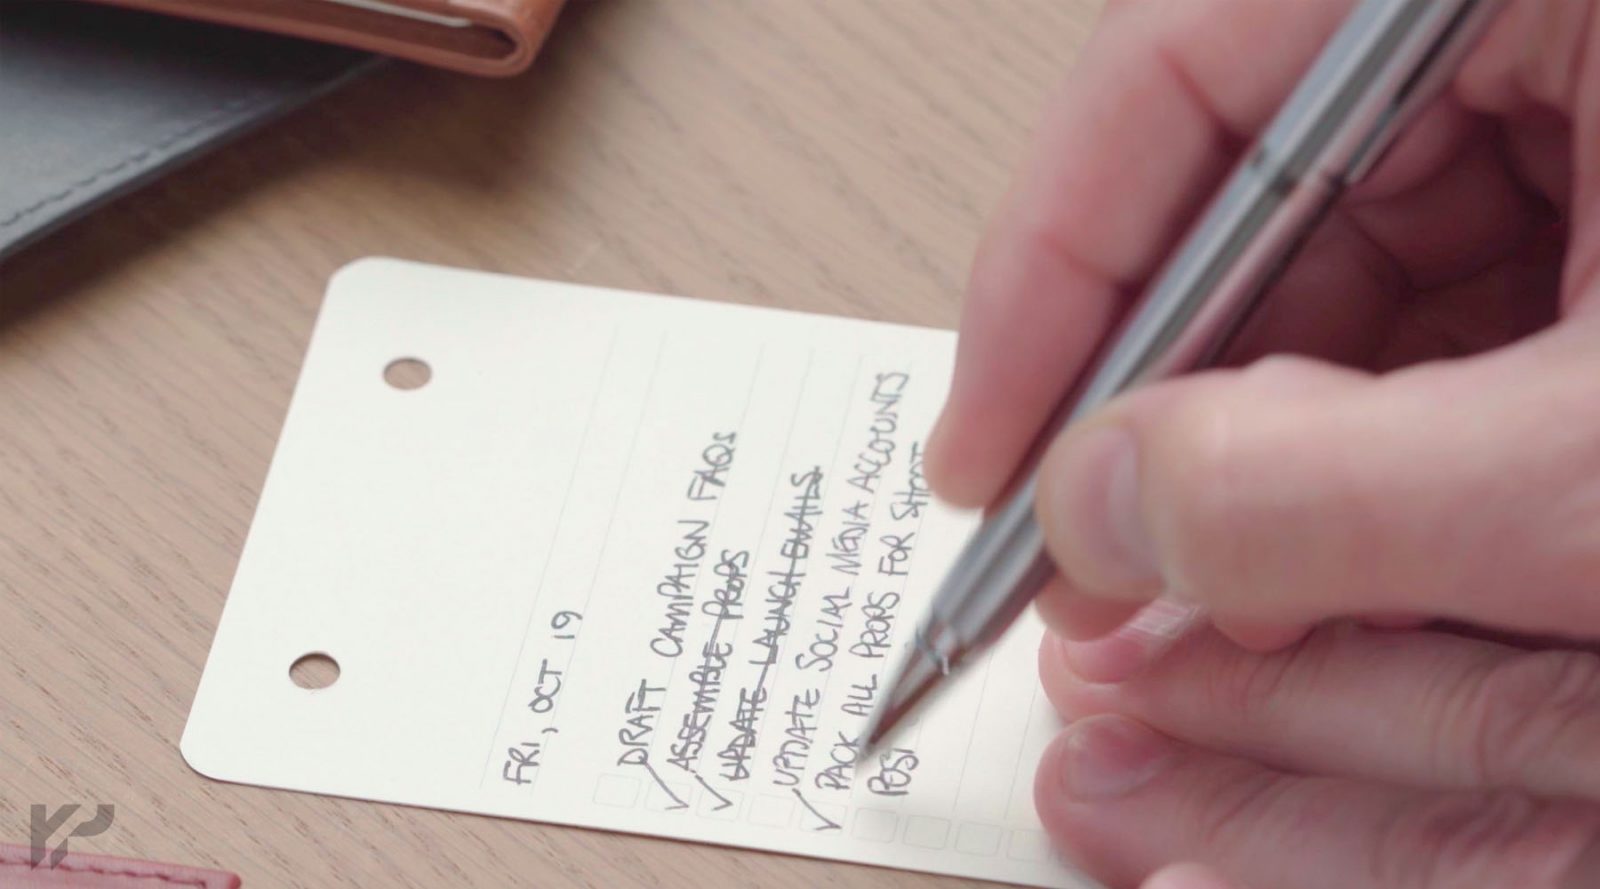 FRI, OCT 19
DRAFT CAMPAIGN FAQS
ASSEMBLE PROPS
UPDATE LAUNCH EMAILS
UPDATE SOCIAL MEDIA ACCOUNTS
PACK ALL PROPS FOR SHOOT